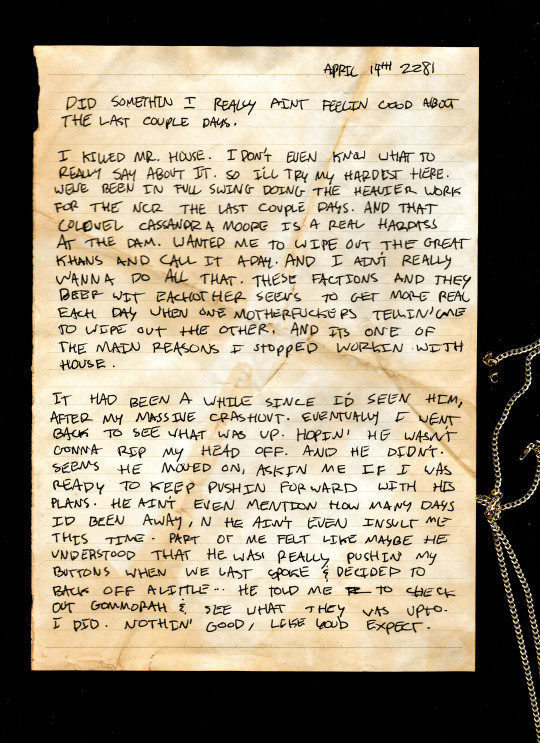 APRIL 14TH 2281
DID SOMETHIN I REALLY AINT FEELIN GOOD ABOUT
THE LAST COUPLE DAYS.
I KILLED MR. HOUSE. I DON'T EVEN KNOW WHAT TO
REALLY SAY ABOUT IT. SO ILL TRY MY HARDEST HERE.
WE'VE BEEN IN FULL SWING DOING THE HEAVIER WORK
FOR THE NCR THE LAST COUPLE DAYS. AND THAT
COLONEL CASSANDRA MOORE IS A REAL HARDASS
AT THE DAM. WANTED ME TO WIPE OUT THE GREAT
KHANS AND CALL IT A DAY. AND I AIN'T REALLY
WANNA DO ALL THAT. THESE FACTIONS AND THEY
BEEF WIT EACHOTHER SEEMS TO GET MORE REAL
EACH DAY WHEN ONE MOTHERFUCKERS TELLIN' ME
TO WIPE OUT THE OTHER. AND ITS ONE OF
THE MAIN REASONS I STOPPED WORKIN WITH
HOUSE.
IT HAD BEEN A WHILE SINCE I'D SEEN HIM,
AFTER MY MASSIVE CRASHOUT. EVENTUALLY I WENT
BACK TO SEE WHAT WAS UP. HOPIN' HE WASN'T
GONNA RIP MY HEAD OFF. AND HE DIDN'T.
SEEMS HE MOVED ON, ASKIN ME IF I WAS
READY TO KEEP PUSHIN FORWARD WITH HIS
PLANS. HE AIN'T EVEN MENTION HOW MANY DAYS
I'D BEEN AWAY, N HE AIN'T EVEN INSULT ME
THIS TIME. PART OF ME FELT LIKE MAYBE HE
UNDERSTOOD THAT HE WAS REALLY PUSHIN' MY
BUTTONS WHEN WE LAST SPOKE & DECIDED TO
BACK OFF A LITTLE... HE TOLD ME TO CHECK
OUT GOMMORAH & SEE WHAT THEY WAS UPTO.
I DID. NOTHIN' GOOD, LIKE YOUD EXPECT.